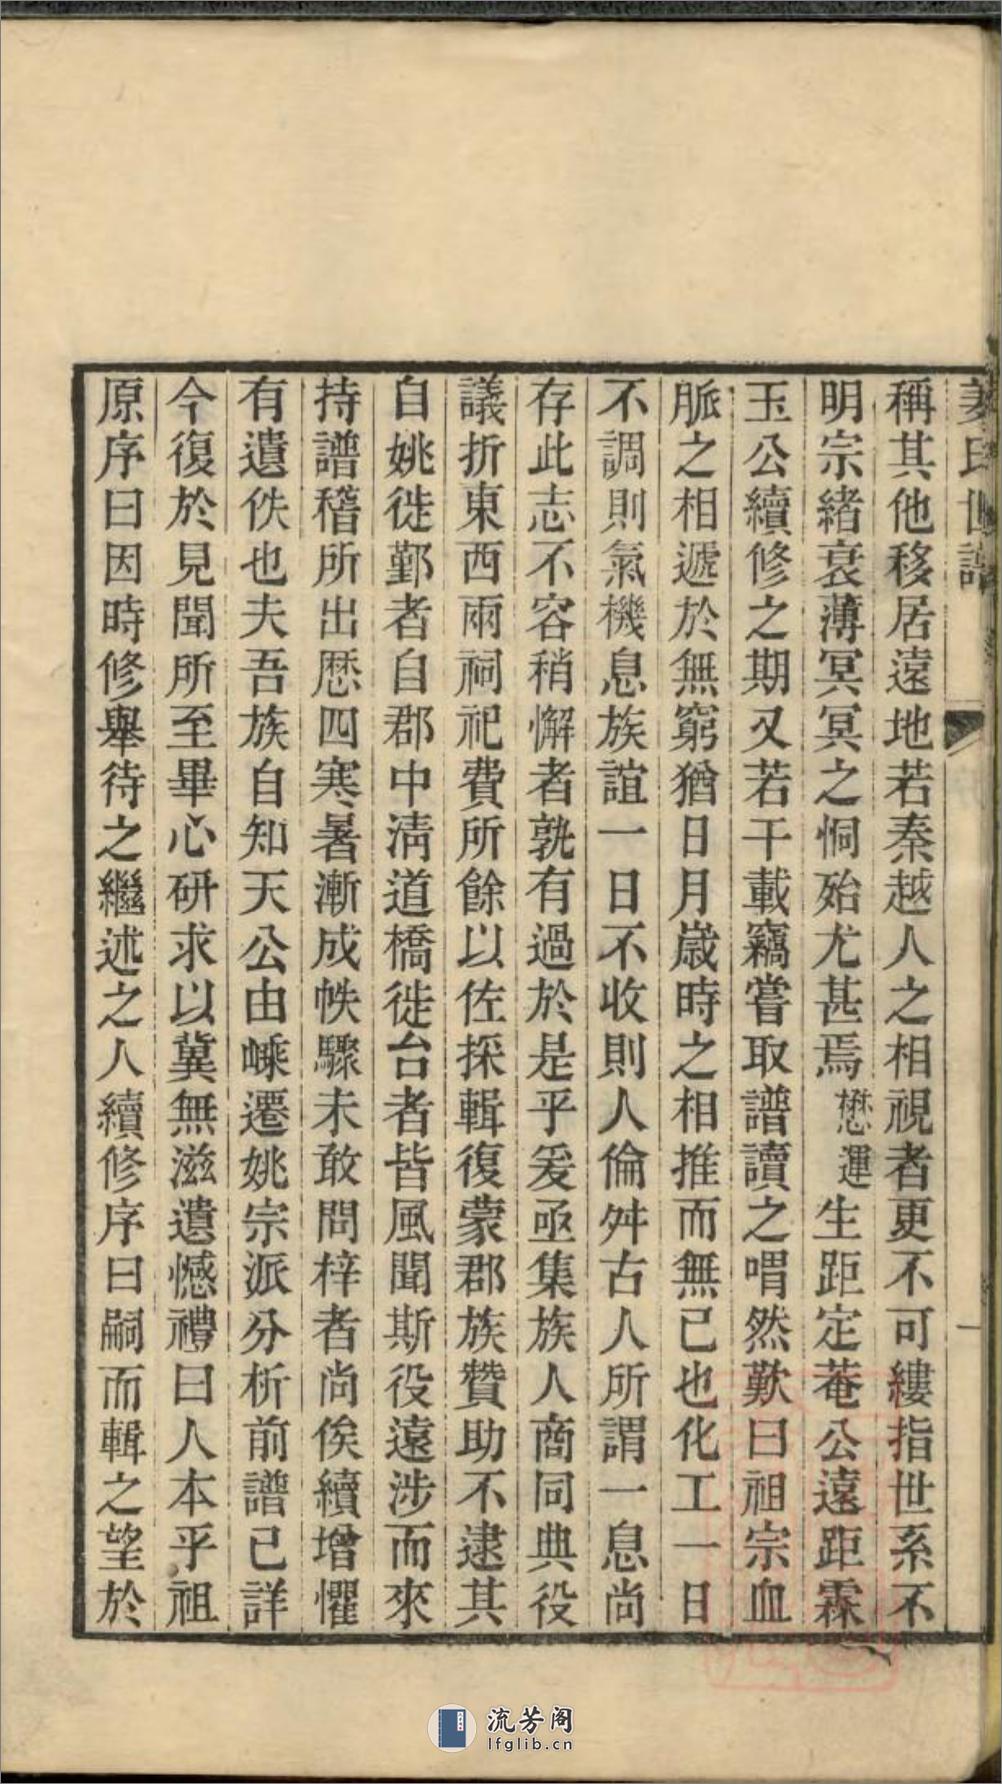 氏世譜
稱其他移居遠地若秦越人之相視者更不可縷指世系不
明宗緒衰薄冥冥之恫殆尤甚焉懋運生距定菴公遠距霖
玉公續修之期又若干載竊嘗取譜讀之喟然歎曰祖宗血
脈之相遞於無窮猶日月歲時之相推而無已也化工一日
不調則氣機息族誼一日不收則人倫舛古人所謂一息尚
存此志不容稍懈者孰有過於是乎爰亟集族人商同典役
議折東西兩祠祀費所餘以佐採輯復蒙郡族贊助不逮其
自姚徙鄞者自郡中清道橋徙台者皆風聞斯役遠涉而來
持譜稽所出歷四寒暑漸成帙驟未敢問梓者尚俟續增懼
有遺佚也夫吾族自知天公由嵊遷姚宗派分析前譜已詳
今復於見聞所至畢心研求以冀無滋遺憾禮曰人本乎祖
原序曰因時修舉待之繼述之人續修序曰嗣而輯之望於
流芳阁
lfglib.cn